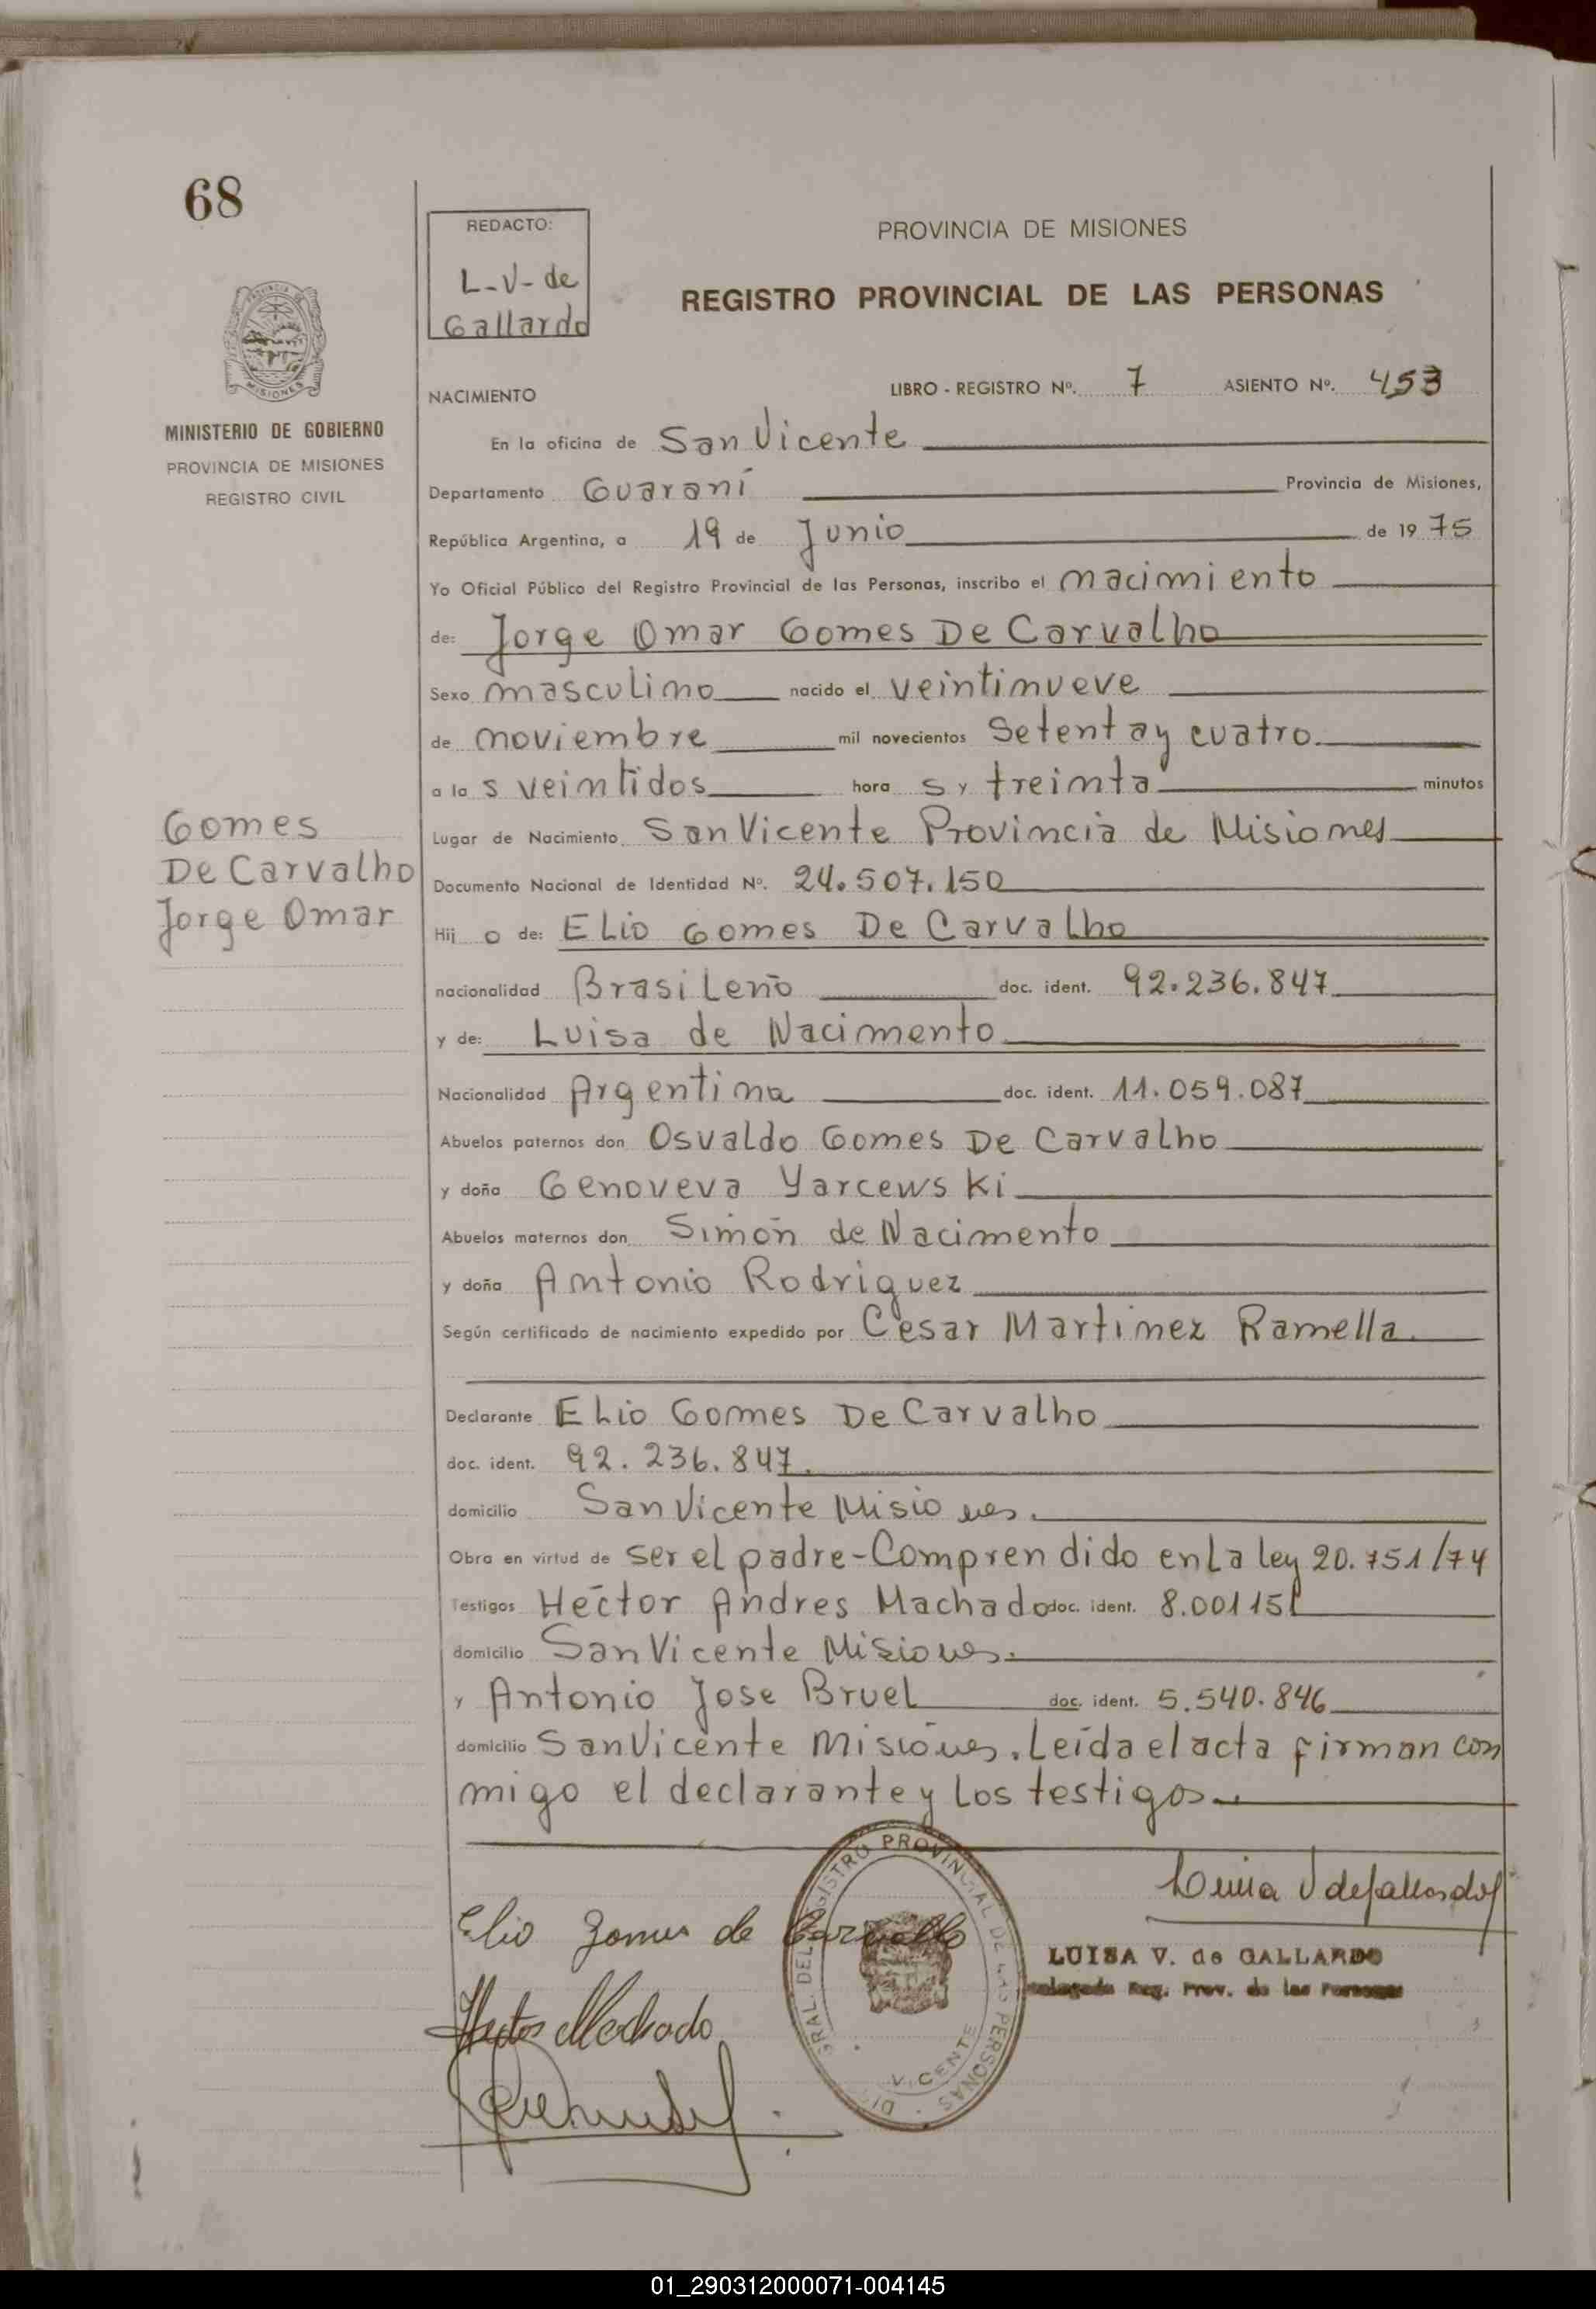 68
REDACTO:
L-V-de
Gallardo
PROVINCIA DE MISIONES
REGISTRO PROVINCIAL DE LAS PERSONAS
MINISTERIO DE GOBIERNO
PROVINCIA DE MISIONES
REGISTRO CIVIL
NACIMIENTO LIBRO - REGISTRO Nº. 7 ASIENTO Nº. 453
En la oficina de San Vicente
Departamento Guaraní Provincia de Misiones,
República Argentina, a 19 de Junio de 1975
Yo Oficial Público del Registro Provincial de las Personas, inscribo el nacimiento
de: Jorge Omar Gomes De Carvalho
Sexo masculino nacido el veintinueve
de noviembre mil novecientos setenta y cuatro.
a las veintidos horas y treinta minutos
Lugar de Nacimiento San Vicente Provincia de Misiones
Documento Nacional de Identidad Nº. 24.507.150
Gomes
De Carvalho
Jorge Omar
Hijo de: Elio Gomes De Carvalho
nacionalidad Brasileño doc. ident. 92.236.847
y de: Luisa de Nacimento
Nacionalidad Argentina doc. ident. 11.059.087
Abuelos paternos don Osvaldo Gomes De Carvalho
y doña Genoveva Yarcewski
Abuelos maternos don Simón de Nacimento
y doña Antonio Rodriguez
Según certificado de nacimiento expedido por Cesar Martinez Ramella.
Declarante Elio Gomes De Carvalho
doc. ident. 92.236.847.
domicilio San Vicente Misiones.
Obra en virtud de ser el padre-Comprendido en la ley 20.751/74
Testigos Héctor Andres Machado doc. ident. 8.001151
domicilio San Vicente Misiones.
y Antonio Jose Bruel doc. ident. 5.540.846
domicilio San Vicente Misiones. Leída el acta firman con
migo el declarante y los testigos.
Luisa V de Gallardo
Elio Gomes de Carvalho
LUISA V. de GALLARDO
Delegada Reg. Prov. de las Personas
Hector Machado
GRAL. DEL REGISTRO PROVINCIAL DE LAS PERSONAS
VICENTE
01_290312000071-004145